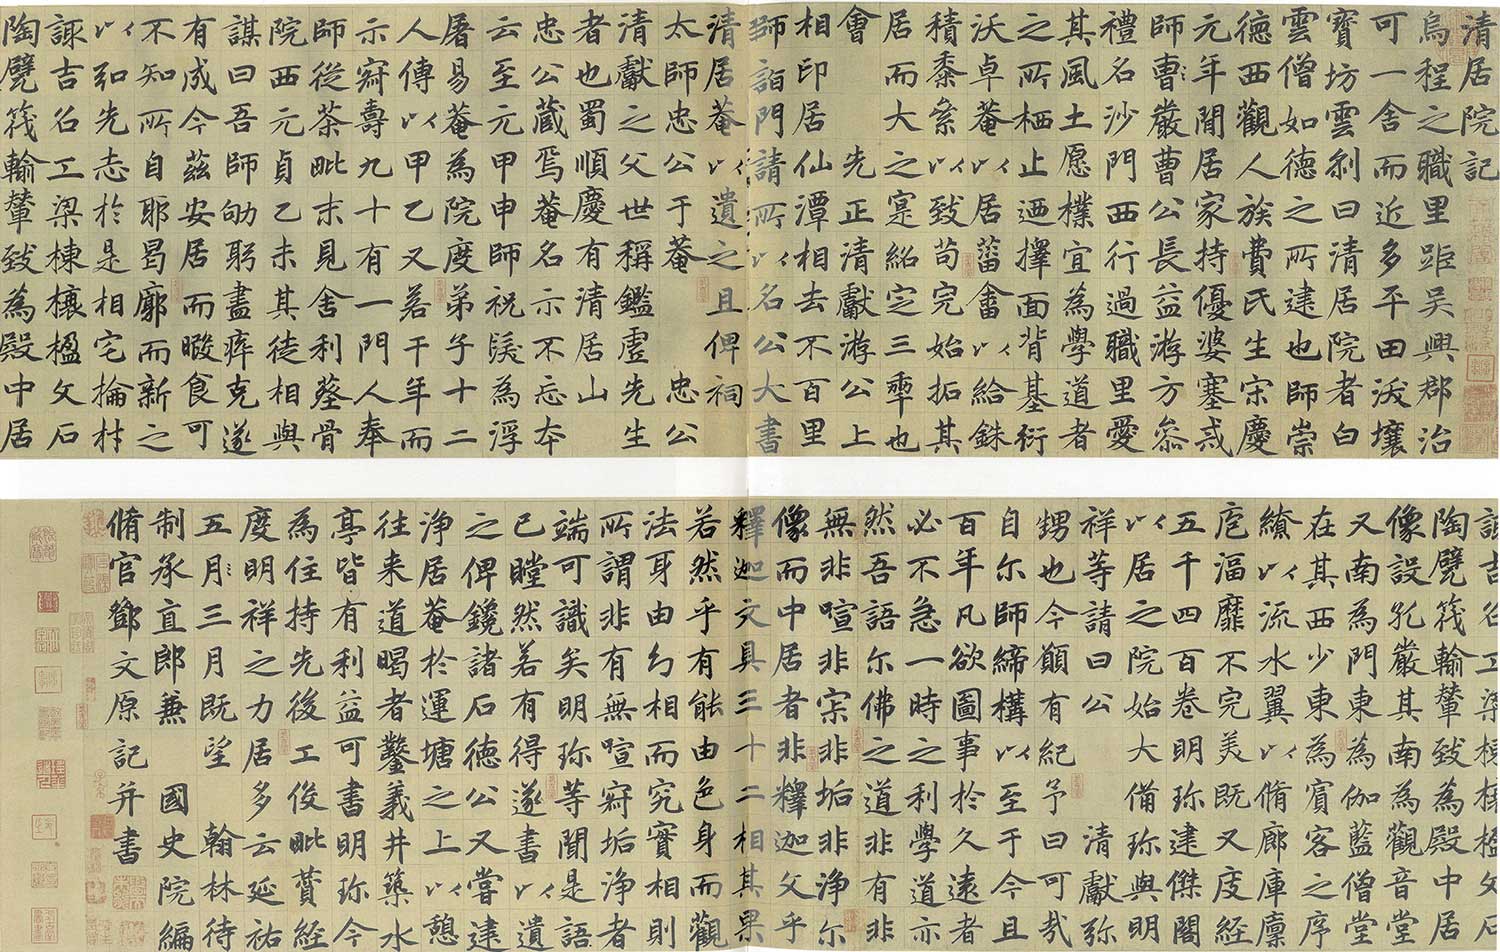 清居院記
烏程之職里距吳興郡治
可一舍而近多平田沃壤
寶坊雲刹曰清居院者白
雲僧如德之所建也師崇
德西觀人族費氏生宋慶
元年間居家持優婆塞戒
師事嚴曹公長益游方叅
禮名沙門西行過職里愛
其風土愿樸宜為學道者
之所栖止迺擇面背基衍
沃卓菴以居菑畬以給銖
積黍絫以致苟完始拓其
居而大之寔紹定三年也
會 先正清獻游公上
相印居仙潭相去不百里
師詣門請所以名公大書
清居菴以遺之且俾祠
太師忠公于菴 忠公
清獻之父世稱鑑虛先生
者也蜀順慶有清居山
忠公藏焉菴名示不忘本
云至元甲申師祝髮為浮
屠易菴為院度弟子十二
人傳以甲乙又若干年而
示寂壽九十有一門人奉
師從茶毗末見舍利塟骨
院西元貞乙未其徒相與
謀曰吾師劬躬盡瘁克遂
有成今茲安居而暇食可
不知所自耶曷廓而新之
以弘先志於是相宅掄材
諏吉名工梁棟欀楹文石
陶甓筏輸輦致為殿中居
諏吉名工梁棟欀楹文石
陶甓筏輸輦致為殿中居
像設孔嚴其南為觀音堂
又南為門東為伽藍僧堂
在其西少東為賓客之序
繚以流水翼以脩廊庫廩
庖湢靡不完美既又度經
五千四百卷明珎建傑閣
以居之院始大備珎與明
祥等請曰公 清獻弥
甥也今願有紀予曰可㢤
自尔師締構以至于今且
百年凡欲圖事於久遠者
必不急一時之利學道亦
然吾語尔佛之道非有非
無非喧非寂非垢非淨尔
像而中居者非釋迦文乎
釋迦文具三十二相其果
若然乎有能由色身而觀
法身由幻相而究實相則
所謂非有無喧寂垢淨者
端可識矣明珎等聞是語
已瞠然若有得遂書以遺
之俾鑱諸石德公又嘗建
淨居菴於運塘之上以憩
往来道暍者鑿義井築水
亭皆有利益可書明珎今
為住持先後工俊毗賛経
度明祥之力居多云延祐
五月三月既望 翰林待
制承直郎兼 國史院編
脩官鄧文原記并書